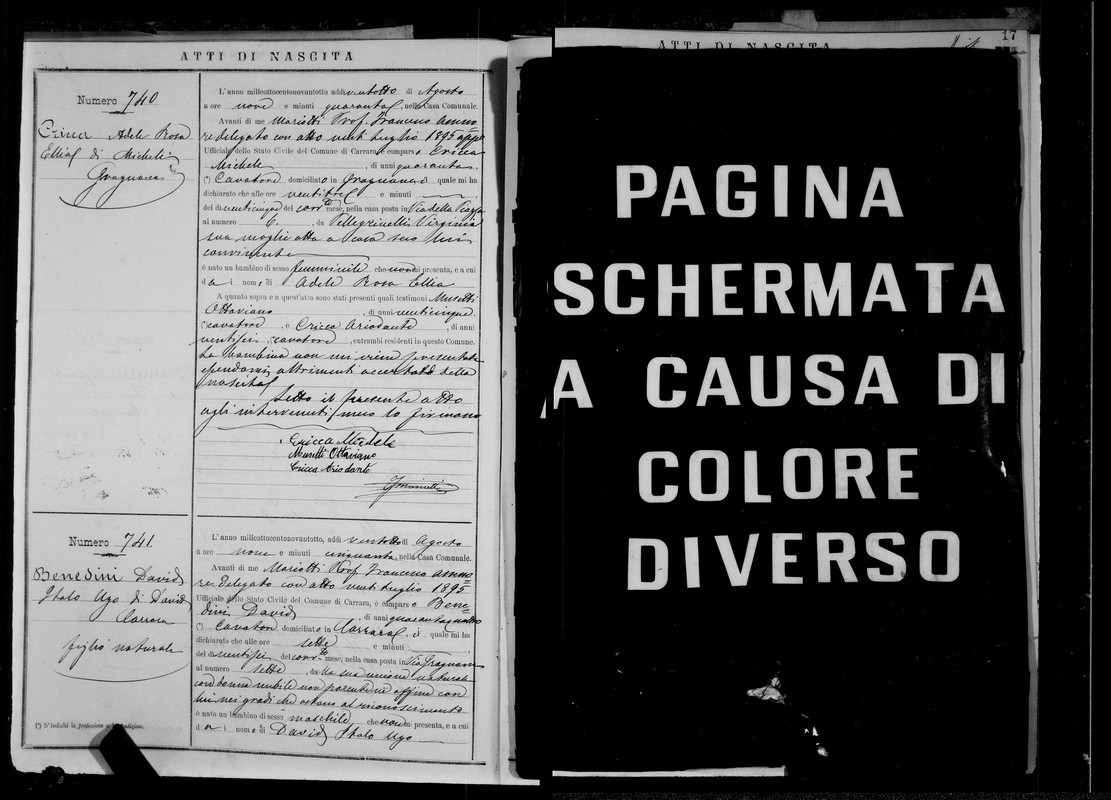 ATTI DI NASCITA
Numero 740
Cricca Adele Rosa
Ellia di Michele
Gragnana
L'anno millecottocentonovantotto addì ventotto di Agosto
a ore nove e minuti quaranta, nella Casa Comunale.
Avanti di me Mariotti Prof. Franceso
delegato con atto venti Luglio 1895
Ufficiale dello Stato Civile del Comune di Carrara, è comparso Cricca
Michele, di anni quaranta
(*) Cavatore domiciliato in Gragnana il quale mi ha
dichiarato che alle ore ventitre e minuti
del dì venticinque del corr.te mese, nella casa posta in Via della Piazza
al numero 6, da Pellegrinelli Virginia
sua moglie atta a casa seco lui
convivente
è nato un bambino di sesso femminile che non mi presenta, e a cui
dà i nomi di Adele Rosa Ellia
A quanto sopra e a quest'atto sono stati presenti quali testimoni Musetti
Ottaviano, di anni venticinque
cavatore, e Cricca Ariodante, di anni
ventisei, cavatore, entrambi residenti in questo Comune.
La bambina non mi viene presentata
essendomi altrimenti accertato della
nascita
Letto il presente atto
agli intervenuti meco lo firmano
Cricca Michele
Musetti Ottaviano
Cricca Ariodante
Numero 741
Benedini David
Italo Ugo di David
Carrara
figlio naturale
L'anno millecottocentonovantotto, addì ventotto di Agosto
a ore nove e minuti cinquanta, nella Casa Comunale.
Avanti di me Mariotti Prof. Franceso
delegato con atto venti Luglio 1895
Ufficiale dello Stato Civile del Comune di Carrara, è comparso Bene=
dini David, di anni quarantaquattro
(*) Cavatore domiciliato in Carrara, il quale mi ha
dichiarato che alle ore sette e minuti
del dì ventisei del corr.te mese, nella casa posta in Via Gragnana
al numero sette, dalla sua unione naturale
con donna nubile non parente ne affine con
lui nei gradi che ostano al riconoscimento
è nato un bambino di sesso maschile che non mi presenta, e a cui
dà i nomi di David Italo Ugo
(*) S'indichi la professione o la condizione.
17
ATTI DI NASCITA
PAGINA
SCHERMATA
A CAUSA DI
COLORE
DIVERSO